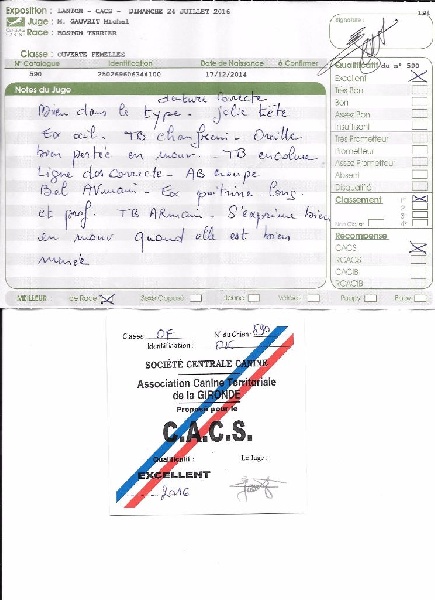 Exposition : LANTON - CACS - DIMANCHE 24 JUILLET 2016
Juge : M. GAUVRIT Michel
Race : BOSTON TERRIER
Signature :
Classe : OUVERTE FEMELLES
N° Catalogue Identification Date de Naissance à Confirmer
590 250269606344100 17/12/2014
Qualificatif du n° 590
Excellent
Très Bon
Bon
Assez Bon
Insuffisant
Très Prometteur
Prometteur
Assez Prometteur
Absent
Disqualifié
Classement
Non Classé
Récompense
CACS
RCACS
CACIB
RCACIB
Notes du Juge
denture correcte
Bien dans le type. Jolie tête
Ex œil. TB chanfrein. Oreille
bien portée en mouv. TB encolure
Ligne dos correcte - AB croupe
Bel AVmain - Ex poitrine long.
et prof. TB ARmain. S'exprime bien
en mouv quand elle est bien
MEILLEUR de Race Sexe Opposé Jeune Vétéran Puppy Baby
Classe OF N° du Chien 590
Identification: OK
SOCIÉTÉ CENTRALE CANINE
Association Canine Territoriale
de la GIRONDE
Proposé pour le
C.A.C.S.
Qualificatif : Le Juge :
EXCELLENT
2016